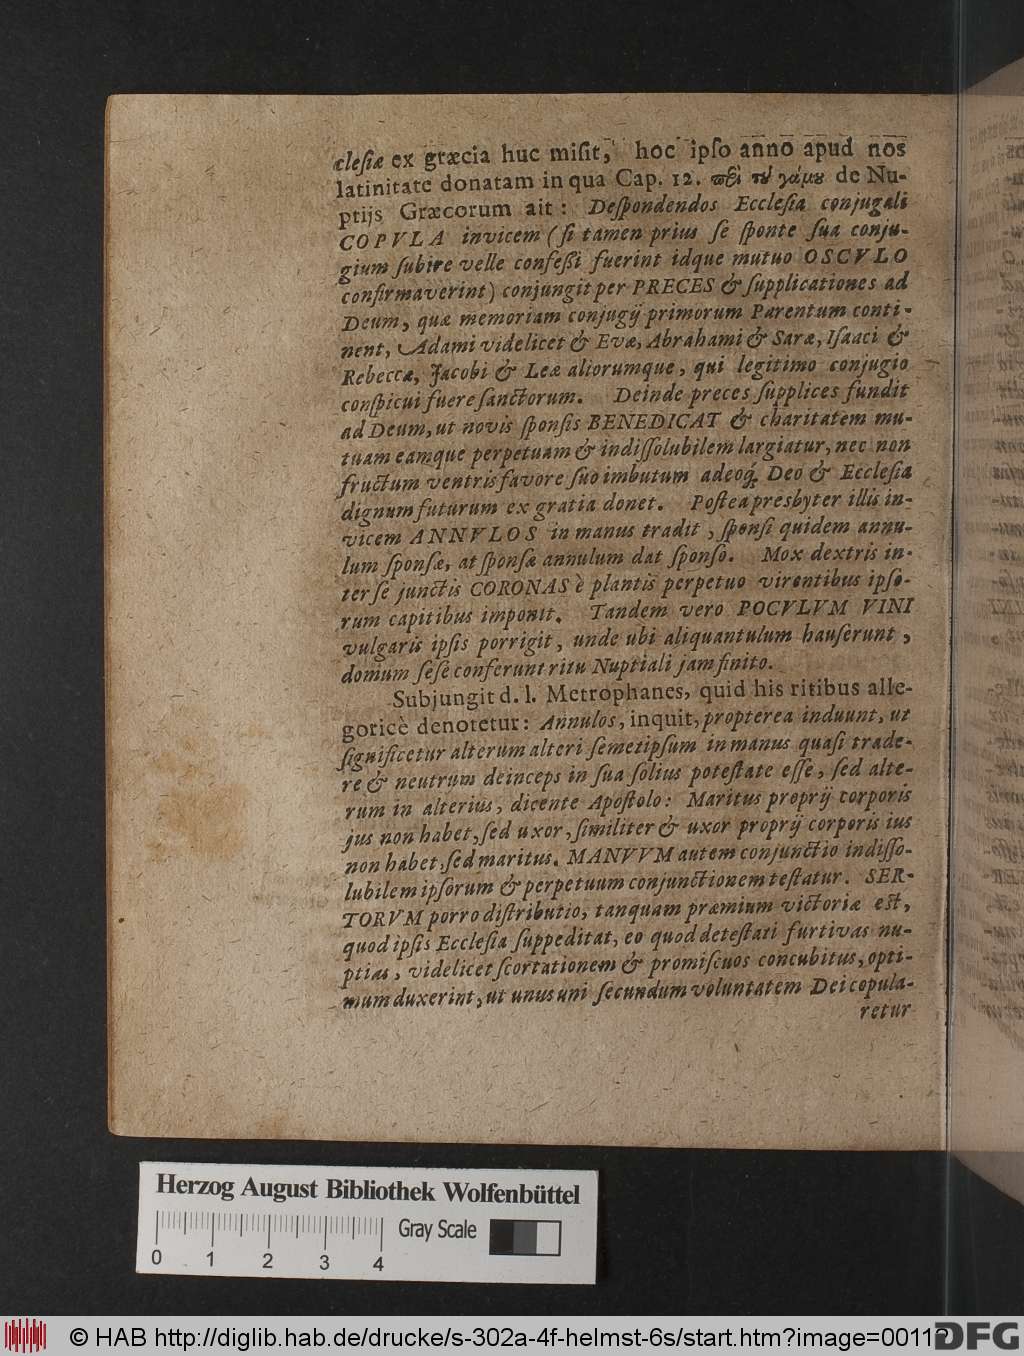 cleſiæ ex græcia huc miſit, hoc ipſo anno apud nos
latinitate donatam in qua Cap. 12. πεὶ τ γάμου de Nu-
ptijs Græcorum ait: Deſpondendos Eccleſia conjugali
COPVLA invicem (ſi tamen prius ſe ſponte ſua conju-
gium ſubire velle confeßi fuerint idque mutuo OSCVLO
confirmaverint) conjungit per PRECES & ſupplicationes ad
Deum, quæ memoriam conjugij primorum Parentum conti-
nent, Adami videlicet & Evæ, Abrahami & Saræ, Iſaaci &
Rebeccæ, Jacobi & Leæ aliorumque, qui legitimo conjugio
conſpicui fuere ſanctorum. Deinde preces ſupplices fundit
ad Deum, ut novis ſponſis BENEDICAT & charitatem mu-
tuam eamque perpetuam & indiſſolubilem largiatur, nec non
fructum ventris favore ſuo imbutum adeoq; Deo & Eccleſia
dignum futurum ex gratia donet. Poſtea presbyter illis in-
vicem ANNVLOS in manus tradit, ſponſi quidem annu-
lum ſponſæ, at ſponſæ annulum dat ſponſo. Mox dextris in-
ter ſe junctis CORONAS è plantis perpetuo virentibus ipſo-
rum capitibus imponit. Tandem vero POCVLVM VINI
vulgaris ipſis porrigit, unde ubi aliquantulum hauſerunt,
domum ſeſe conferunt ritu Nuptiali jam finito.
Subjungit d. l. Metrophanes, quid his ritibus alle-
goricè denotetur: Annulos, inquit, propterea induunt, ut
ſignificetur alterum alteri ſemetipſum in manus quaſi trade-
re & neutrum deinceps in ſua ſolius poteſtate eſſe, ſed alte-
rum in alterius, dicente Apoſtolo: Maritus proprij corporis
jus non habet, ſed uxor, ſimiliter & uxor proprij corporis ius
non habet, ſed maritus. MANVVM autem conjunctio indiſſo-
lubilem ipſorum & perpetuum conjunctionem teſtatur. SER-
TORVM porro diſtributio, tanquam præmium victoriæ eſt,
quod ipſis Eccleſia ſuppeditat, eo quod deteſtati furtivas nu-
ptias, videlicet ſcortationem & promiſcuos concubitus, opti-
mum duxerint, ut unus uni ſecundum voluntatem Dei copula-
retur
Herzog August Bibliothek Wolfenbüttel
0 1 2 3 4 Gray Scale
© HAB http://diglib.hab.de/drucke/s-302a-4f-helmst-6s/start.htm?image=00112
DFG